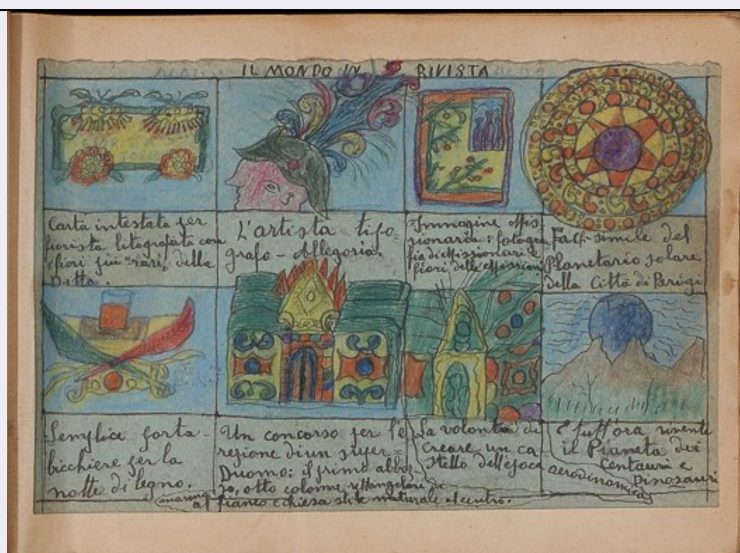 IL MONDO IN RIVISTA
Carta intestata per
fiorista litografata con
fiori più rari, della
Ditta.
L'artista tipo-
grafo - Allegoria.
Immagine
fia di
fiori delle
Fac-simile del
Planetario solare
della Città di Parigi
Semplice porta-
bicchiere per la
notte di legno.
Un concorso per l'e-
rezione di un super-
Duomo: il primo abboz-
zo, otto colonne rettangolari di
fianco e chiesa stile naturale al centro.
La volontà di
creare un ca-
stello dell'epoca
E' tutt'ora vivente
il Pianeta dei
Centauri e
Dinosauri
aerodinamica